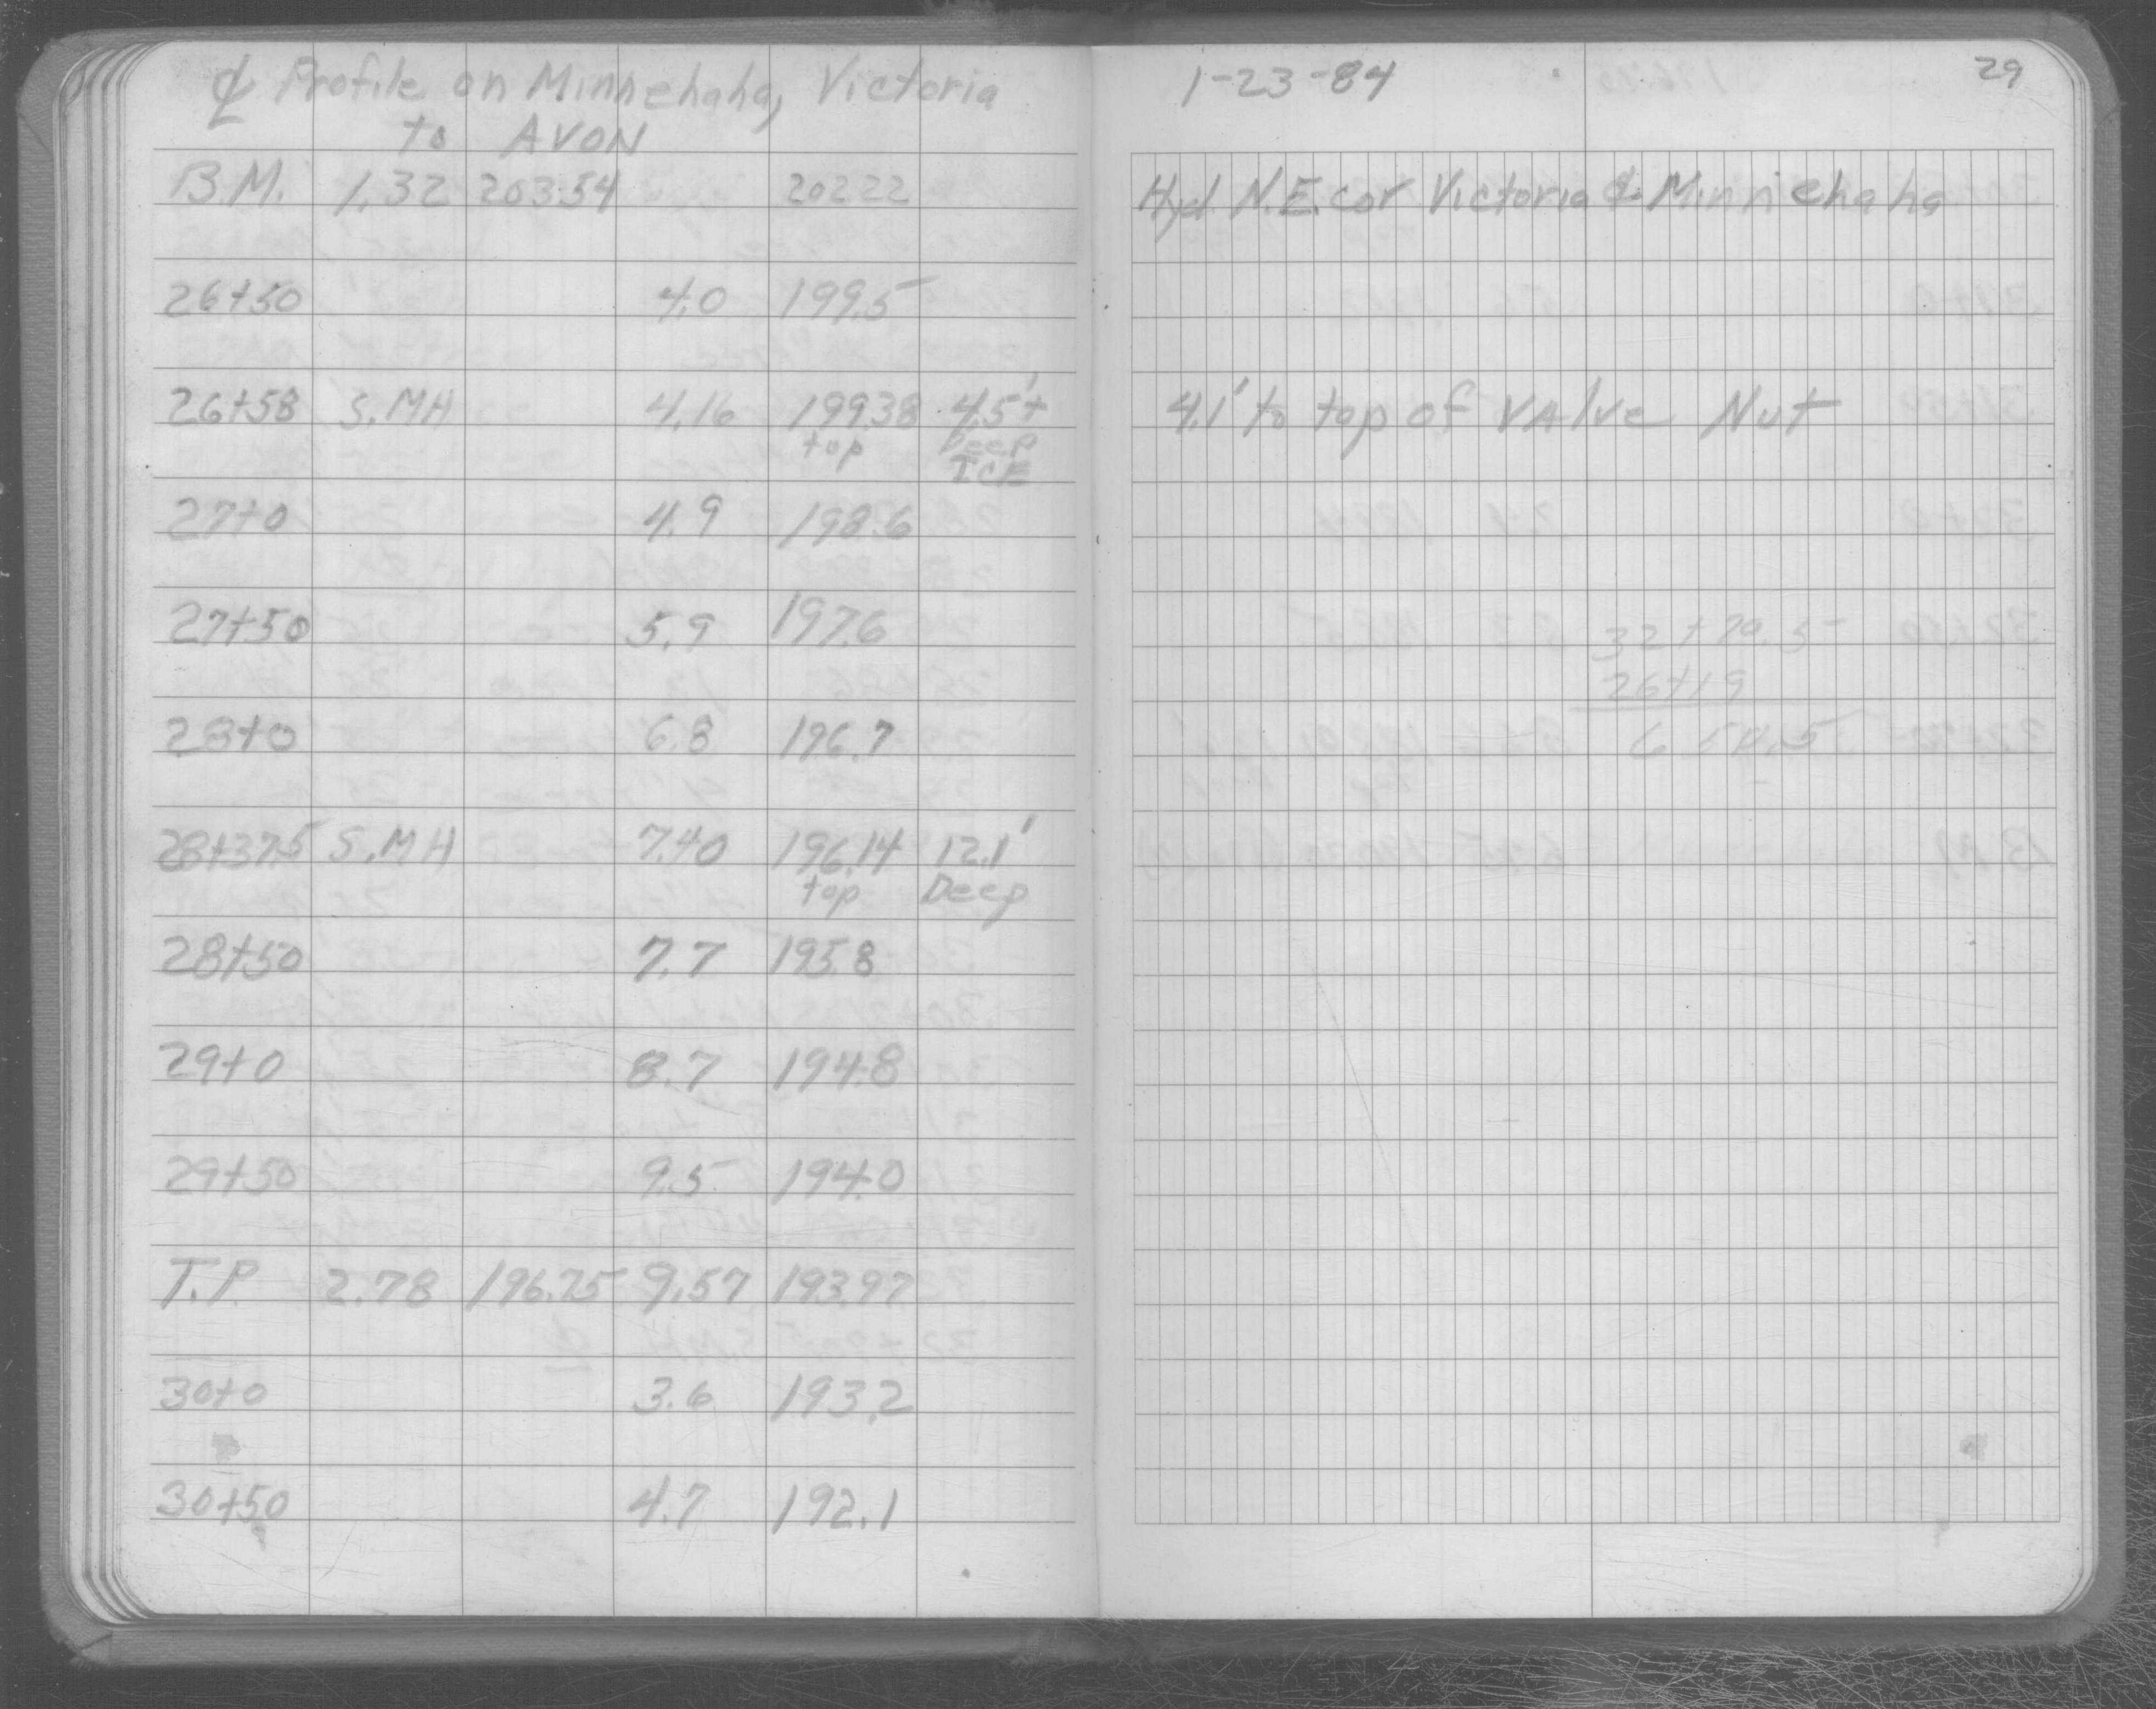 ℄ Profile on Minnehaha, Victoria
to AVON
B.M. 1.32 203.54 202.22
26+50 4.0 199.5
26+58 S.MH 4.16 199.38 4.5'+
top Deep
ICE
27+0 4.9 198.6
27+50 5.9 197.6
28+0 6.8 196.7
28+37.5 S.MH 7.40 196.14 12.1'
top Deep
28+50 7.7 195.8
29+0 8.7 194.8
29+50 9.5 194.0
T.P. 2.78 196.75 9.57 193.97
30+0 3.6 193.2
30+50 4.7 192.1
1-23-84 29
Hyd. N.E. cor Victoria & Minnehaha
4.1' to top of VAlve Nut
26+19